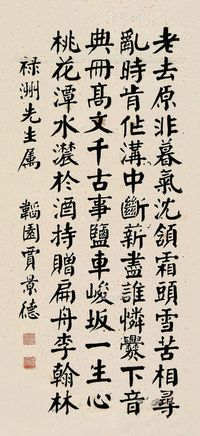 老去原非暮氣沈頷霜頭雪苦相尋
亂時肯作溝中斷薪盡誰憐爨下音
典冊高文千古事鹽車峻坂一生心
桃花潭水濃於酒持贈扁舟李翰林
祿洲先生属 韜園賈景德